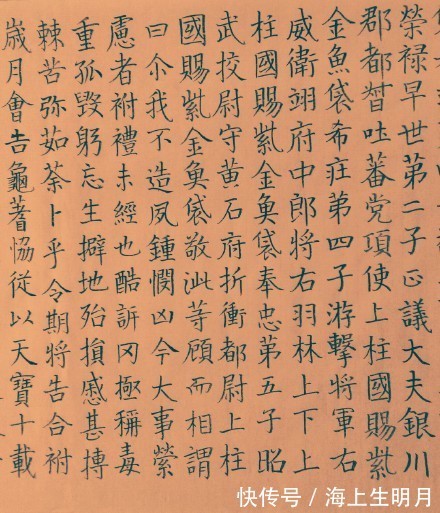 榮禄早世第二子正議大夫銀川
郡都督吐蕃党項使上柱國賜紫
金魚袋希莊第四子游擊將軍右
威衛翊府中郎將右羽林上下上
柱國賜紫金魚袋奉忠第五子昭
武挍尉守黄石府折衝都尉上柱
國賜紫金魚袋敬泚等顧而相謂
曰尒我不造夙鍾憫凶今大事縈
慮者祔禮未經也酷訴罔極稱毒
重孤毀躬忘生擗地殆損慼甚摶
棘苦弥茹荼卜乎令期將告合祔
歲月會吉龜蓍恊從以天寶十載
快传号 / 海上生明月